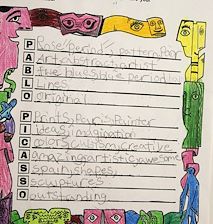 P Rose Period, pattern, Poor
A Art, abstract, artist
B the blues, blue period
L Lines
O original
P Prints, Paris, Painter
I Ideas, imagination
C color, cubism, creative
A amazing, artistic, awesome
S spain, shapes,
S sculptures
O outstanding